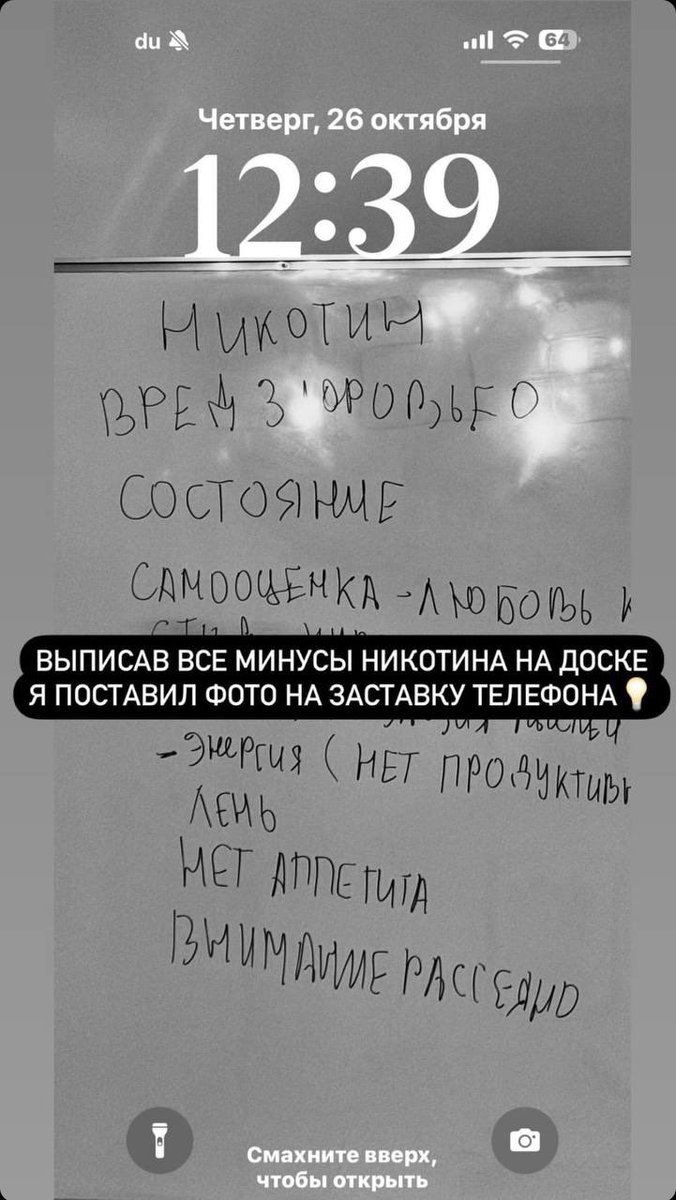 du
64
Четверг, 26 октября
12:39
НИКОТИН
ВРЕД ЗДОРОВЬЕО
СОСТОЯНИЕ
САМООЦЕНКА - ЛЮБОВЬ К
ВЫПИСАВ ВСЕ МИНУСЫ НИКОТИНА НА ДОСКЕ
Я ПОСТАВИЛ ФОТО НА ЗАСТАВКУ ТЕЛЕФОНА💡
- ЭНЕРГИЯ ( НЕТ ПРОДУКТИВН
ЛЕНЬ
НЕТ АППЕТИТА
ВНИМАНИЕ РАССЕЯНО
Смахните вверх,
чтобы открыть